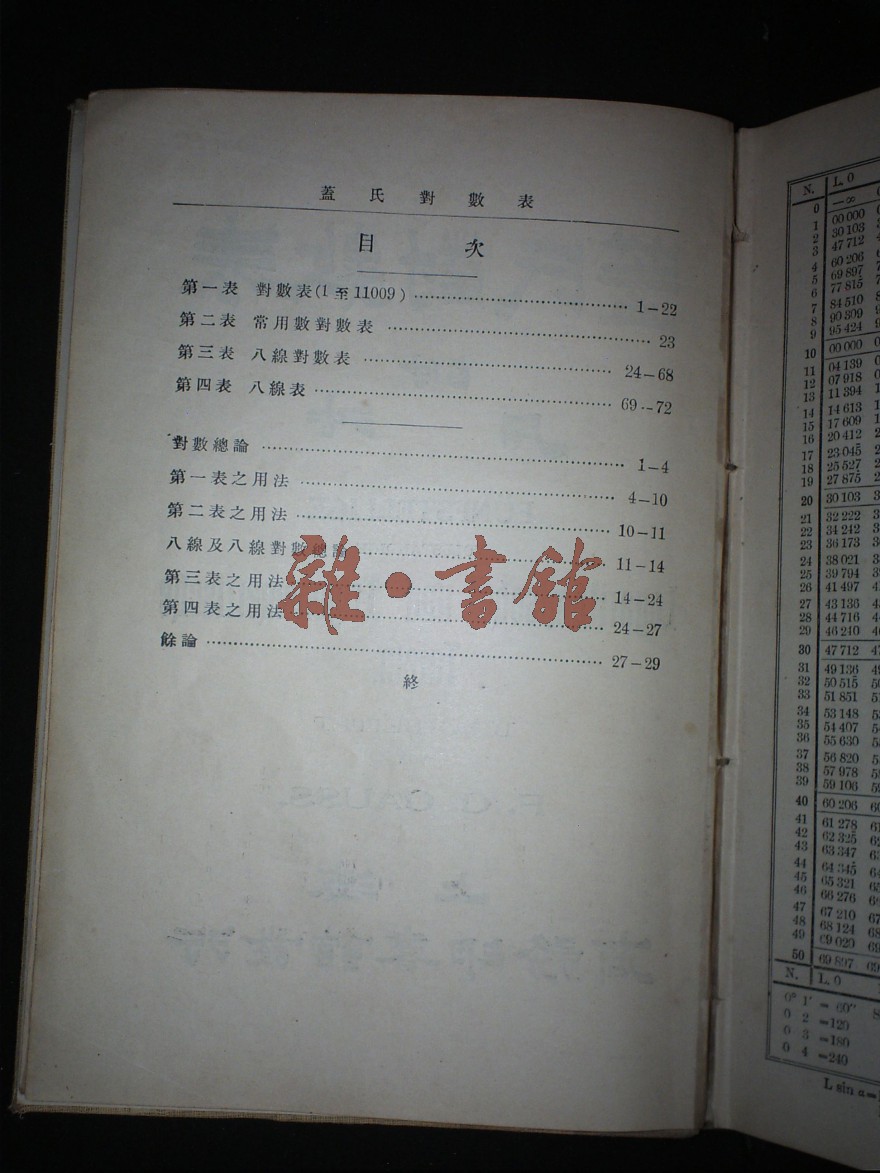 蓋氏對數表
目次
第一表 對數表(1至11009) 1－22
第二表 常用數對數表 23
第三表 八線對數表 24－68
第四表 八線表 69－72
對數總論 1－4
第一表之用法 4－10
第二表之用法 10－11
八線及八線對數總論 11－14
第三表之用法 14－24
第四表之用法 24－27
餘論 27－29
終
雜·書館
N. L. 0
0 —∞
1 00 000
2 30 103
3 47 712
4 60 206
5 69 897
6 77 815
7 84 510
8 90 309
9 95 424
10 00 000
11 04 139
12 07 918
13 11 394
14 14 613
15 17 609
16 20 412
17 23 045
18 25 527
19 27 875
20 30 103
21 32 222
22 34 242
23 36 173
24 38 021
25 39 794
26 41 497
27 43 136
28 44 716
29 46 240
30 47 712
31 49 136
32 50 515
33 51 851
34 53 148
35 54 407
36 55 630
37 56 820
38 57 978
39 59 106
40 60 206
41 61 278
42 62 325
43 63 347
44 64 345
45 65 321
46 66 276
47 67 210
48 68 124
49 69 020
50 69 897
N. L. 0
0° 1′ = 60″
0 2 =120
0 3 =180
0 4 =240
L sin α=